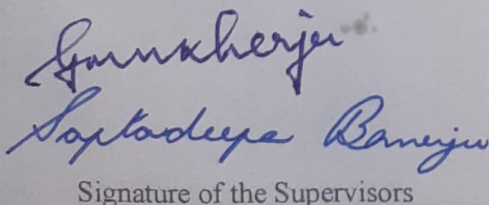 Gmukherjee
Saptadeepa Banerjee
Signature of the Supervisors